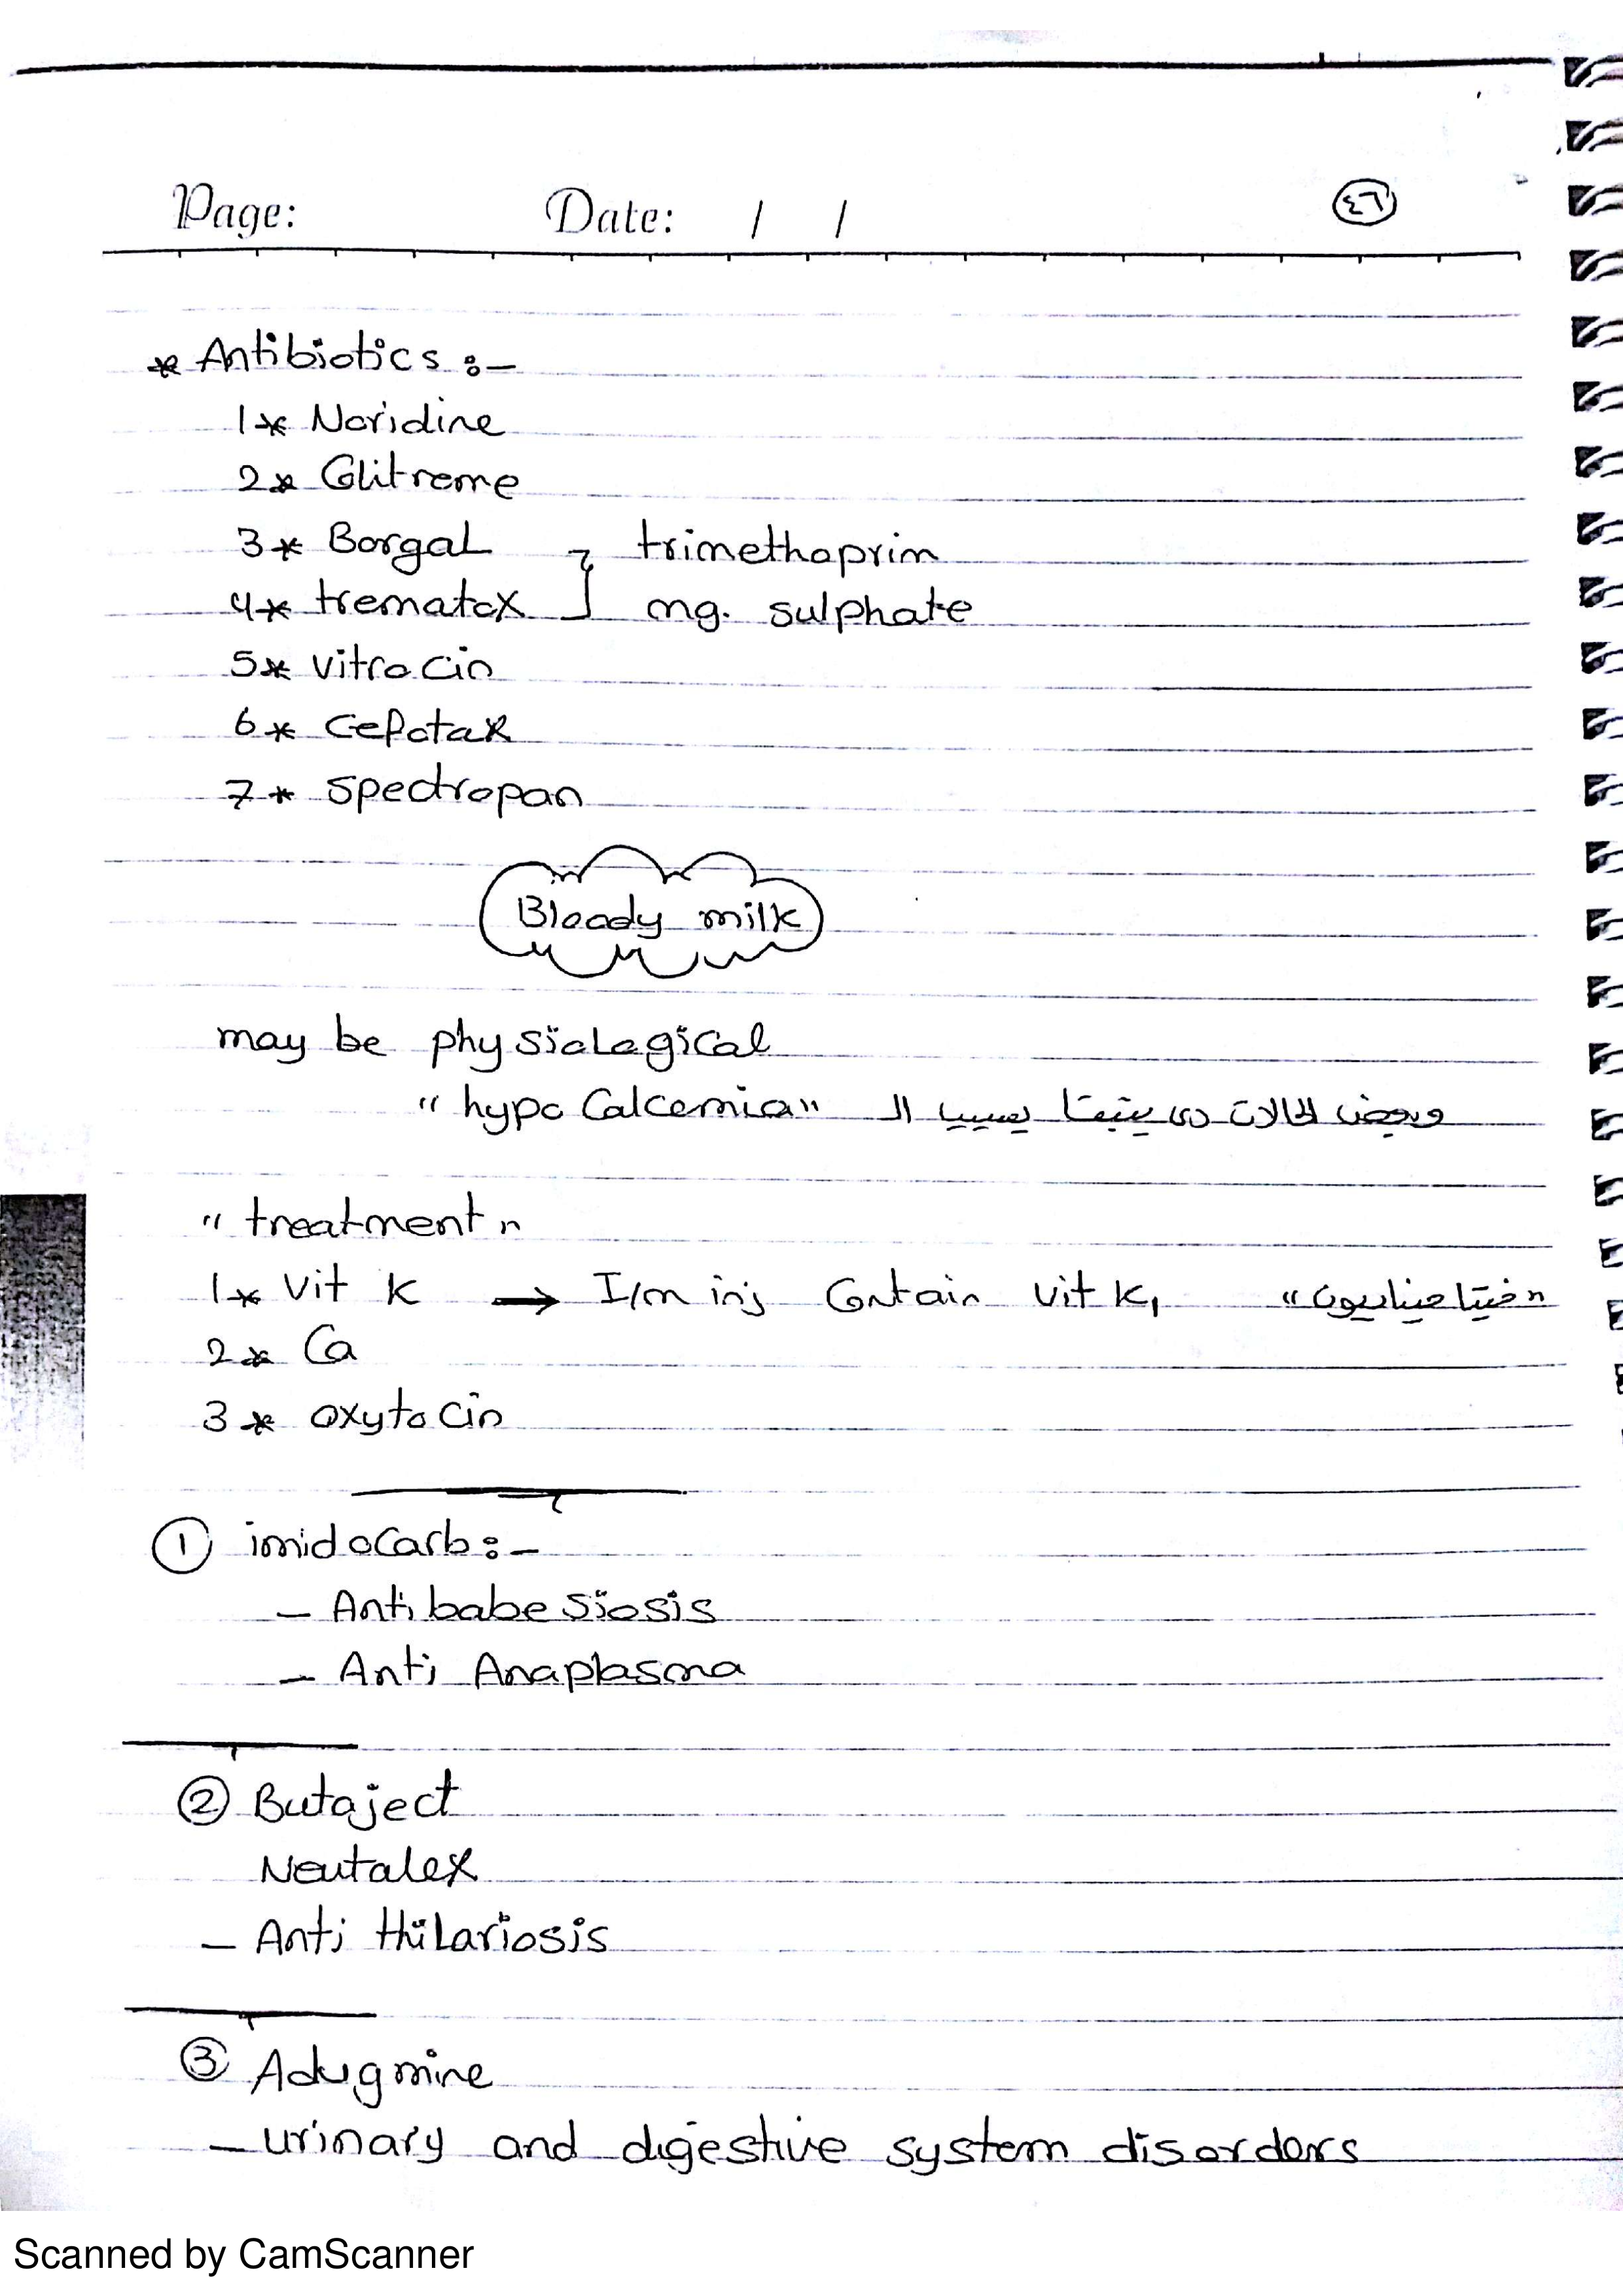 Page: Date: / / ٤٦
* Antibiotics :-
1* Noridine
2* Glitreme
3* Borgal } trimethoprim
4* trematox mg. sulphate
5* vitrocin
6* Cefotax
7* Spectropan
Bloody milk
may be physiological
وبعض الحالات دى بيبقا بسبب الـ "hypo Calcemia"
"treatment"
1* Vit K → I/m inj Contain Vit K₁ "فيتاميناديون"
2* Ca
3* oxytocin
① imidocarb :-
- Antibabesiosis
- Anti Anaplasma
② Butaject
Neutalex
- Anti thilariosis
③ Adugmine
- urinary and digestive system disorders
Scanned by CamScanner